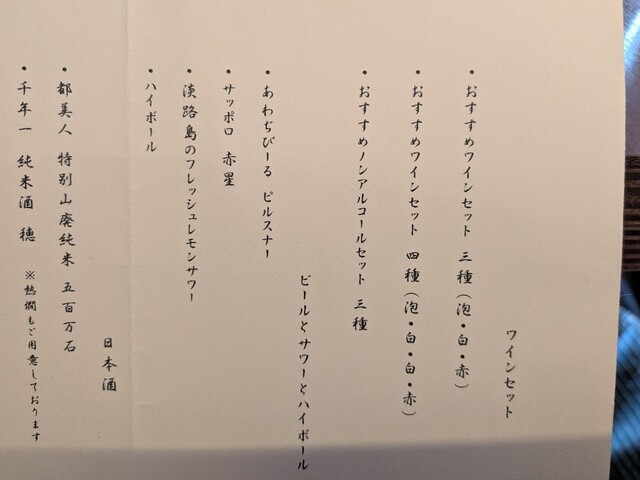 ワインセット
・おすすめワインセット 三種（泡・白・赤）
・おすすめワインセット 四種（泡・白・白・赤）
・おすすめノンアルコールセット 三種
ビールとサワーとハイボール
・あわぢびーる ピルスナー
・サッポロ 赤星
・淡路島のフレッシュレモンサワー
・ハイボール
日本酒
・都美人 特別山廃純米 五百万石
・千年一 純米酒 穂 ※熱燗もご用意しております